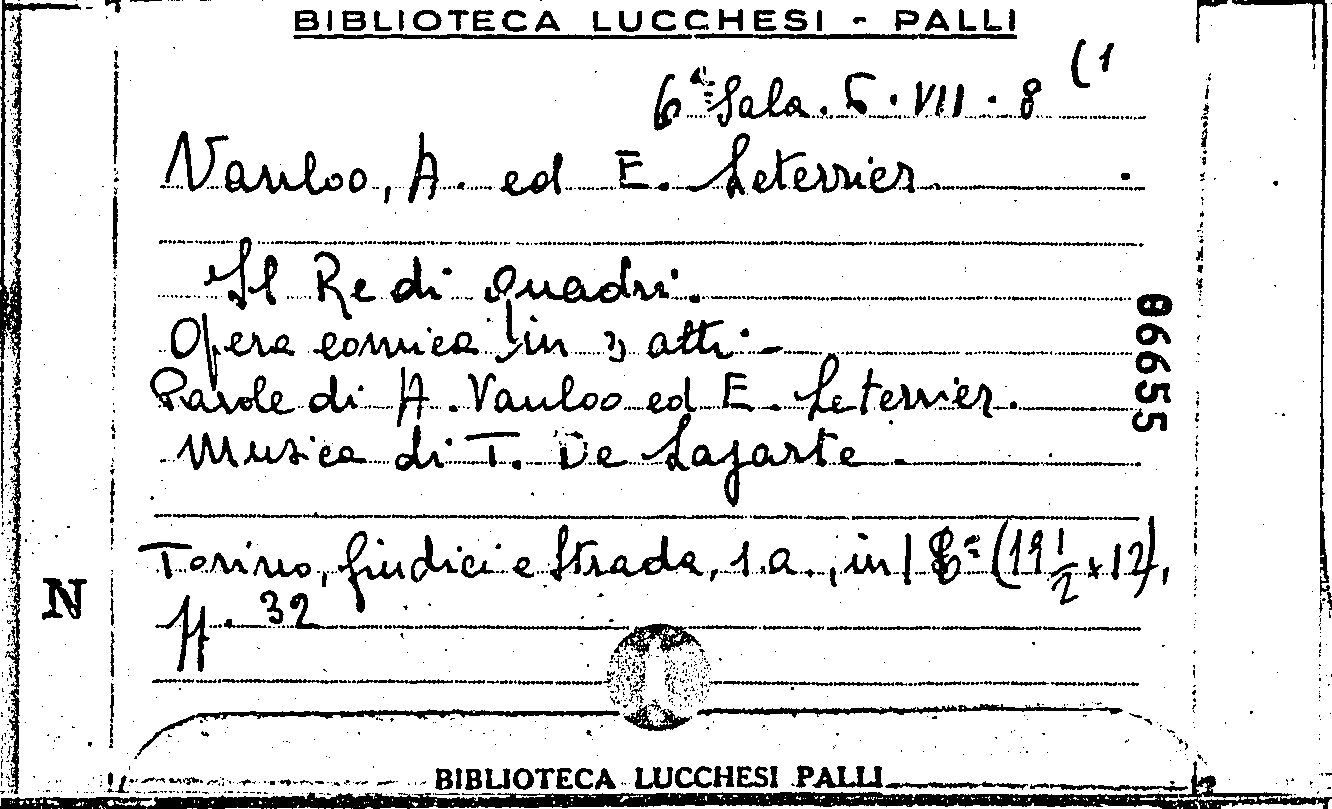 BIBLIOTECA LUCCHESI - PALLI
6ª Sala. 5. VII. 8 (1
Vanloo, A. ed E. Leterrier.
Il Re di quadri.
Opera comica in 3 atti. -
Parole di A. Vanloo ed E. Leterrier.
Musica di T. De Lajarte -
06655
Torino, Giudici e Strada, s.a., in 8º (19 1/2 x 12),
pp. 32
N
BIBLIOTECA LUCCHESI PALLI